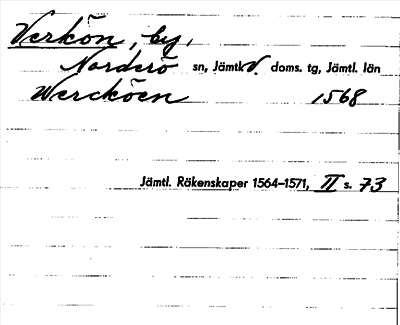 Verkön, by,
Norderö sn, Jämtl. V. doms. tg, Jämtl. län
Werköen 1568
Jämtl. Räkenskaper 1564–1571, II s. 73